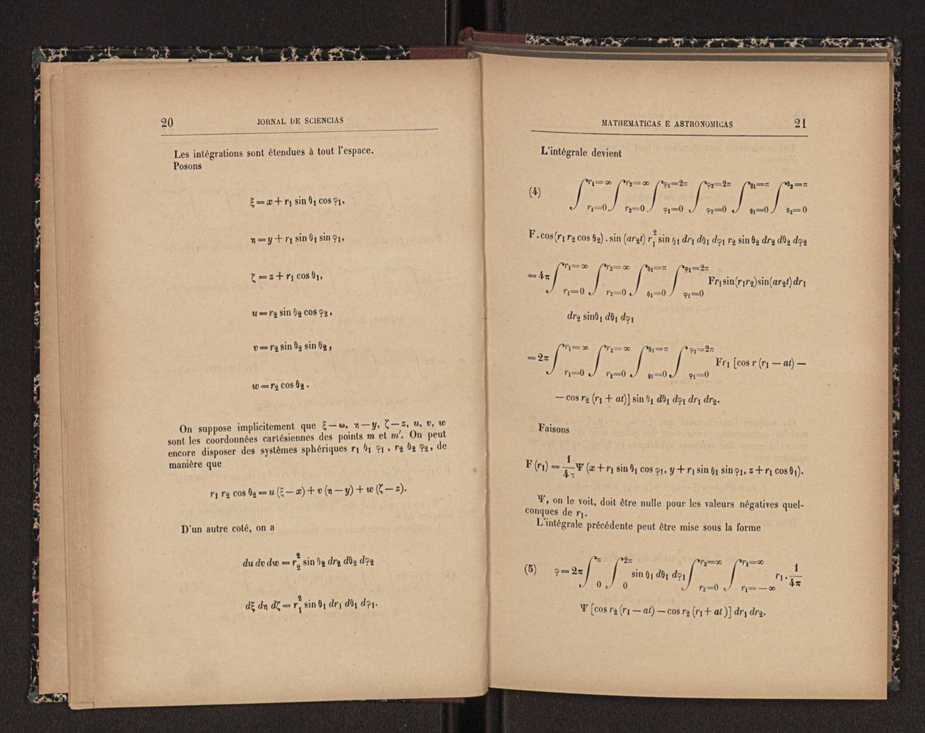 20
JORNAL DE SCIENCIAS
Les intégrations sont étendues à tout l'espace.
Posons
ξ = x + r₁ sin θ₁ cos φ₁,
η = y + r₁ sin θ₁ sin φ₁,
ζ = z + r₁ cos θ₁,
u = r₂ sin θ₂ cos φ₂,
v = r₂ sin θ₂ sin θ₂,
w = r₂ cos θ₂.
On suppose implicitement que ξ — ω, η — y, ζ — z, u, v, w
sont les coordonnées cartésiennes des points m et m'. On peut
encore disposer des systèmes sphériques r₁ θ₁ φ₁, r₂ θ₂ φ₂, de
manière que
r₁ r₂ cos θ₂ = u (ξ — x) + v (η — y) + w (ζ — z).
D'un autre coté, on a
du dv dw = r₂² sin θ₂ dr₂ dθ₂ dφ₂
dξ dη dζ = r₁² sin θ₁ dr₁ dθ₁ dφ₁.
MATHEMATICAS E ASTRONOMICAS
21
L'intégrale devient
(4) ∫r₁=0^r₁=∞ ∫r₂=0^r₂=∞ ∫φ₁=0^φ₁=2π ∫φ₂=0^φ₂=2π ∫θ₁=0^θ₁=π ∫θ₂=0^θ₂=π
F . cos (r₁ r₂ cos θ₂) . sin (ar₂t) r₁² sin θ₁ dr₁ dθ₁ dφ₁ r₂ sin θ₂ dr₂ dθ₂ dφ₂
= 4π ∫r₁=0^r₁=∞ ∫r₂=0^r₂=∞ ∫θ₁=0^θ₁=π ∫φ₁=0^φ₁=2π Fr₁ sin(r₁r₂) sin(ar₂t) dr₁
dr₂ sin θ₁ dθ₁ dφ₁
= 2π ∫r₁=0^r₁=∞ ∫r₂=0^r₂=∞ ∫θ₁=0^θ₁=π ∫φ₁=0^φ₁=2π Fr₁ [cos r (r₁ — at) —
— cos r₂ (r₁ + at)] sin θ₁ dθ₁ dφ₁ dr₁ dr₂.
Faisons
F (r₁) = 1/4π Ψ (x + r₁ sin θ₁ cos φ₁, y + r₁ sin θ₁ sin φ₁, z + r₁ cos θ₁).
Ψ, on le voit, doit être nulle pour les valeurs négatives quel-
conques de r₁.
L'intégrale précédente peut être mise sous la forme
(5) φ = 2π ∫0^π ∫0^2π sin θ₁ dθ₁ dφ₁ ∫r₂=0^r₂=∞ ∫r₁=—∞^r₁=∞ r₁ . 1/4π
Ψ [cos r₂ (r₁ — at) — cos r₂ (r₁ + at)] dr₁ dr₂.